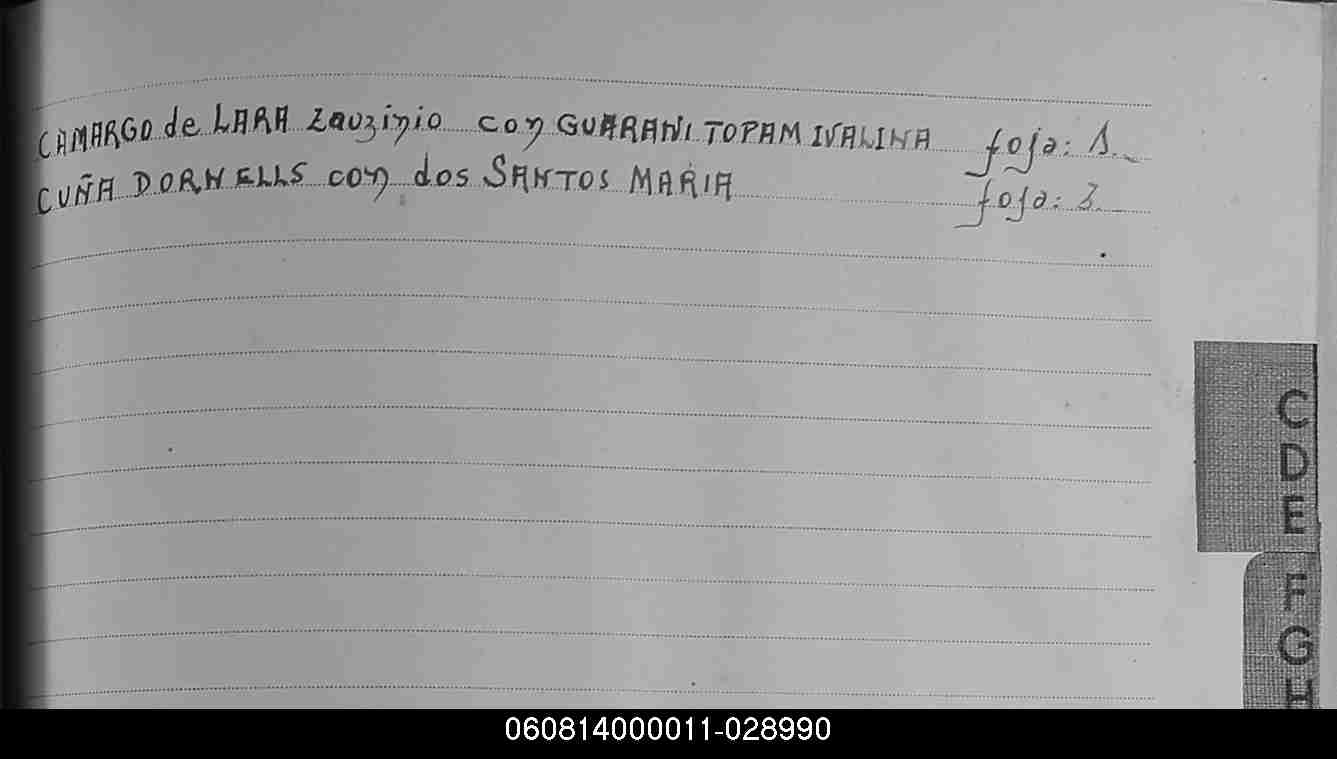 CAMARGO de LARA Lauzinio con GUARANI TOPAM IVALINA foja: 1.
CUÑA DORNELLS con dos SANTOS MARIA foja: 3.
C
D
E
F
G
H
060814000011-028990